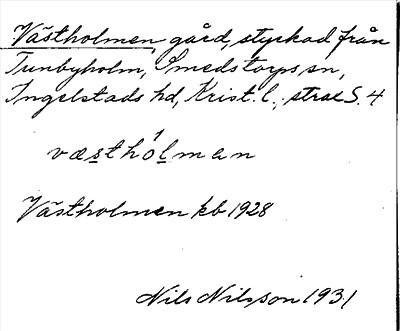 Västholmen, gård, styckad från
Tunbyholm, Smedstorps sn,
Ingelstads hd, Krist. l.,
væsthòlman
Västholmen kb 1928
Nils Nilsson 1931